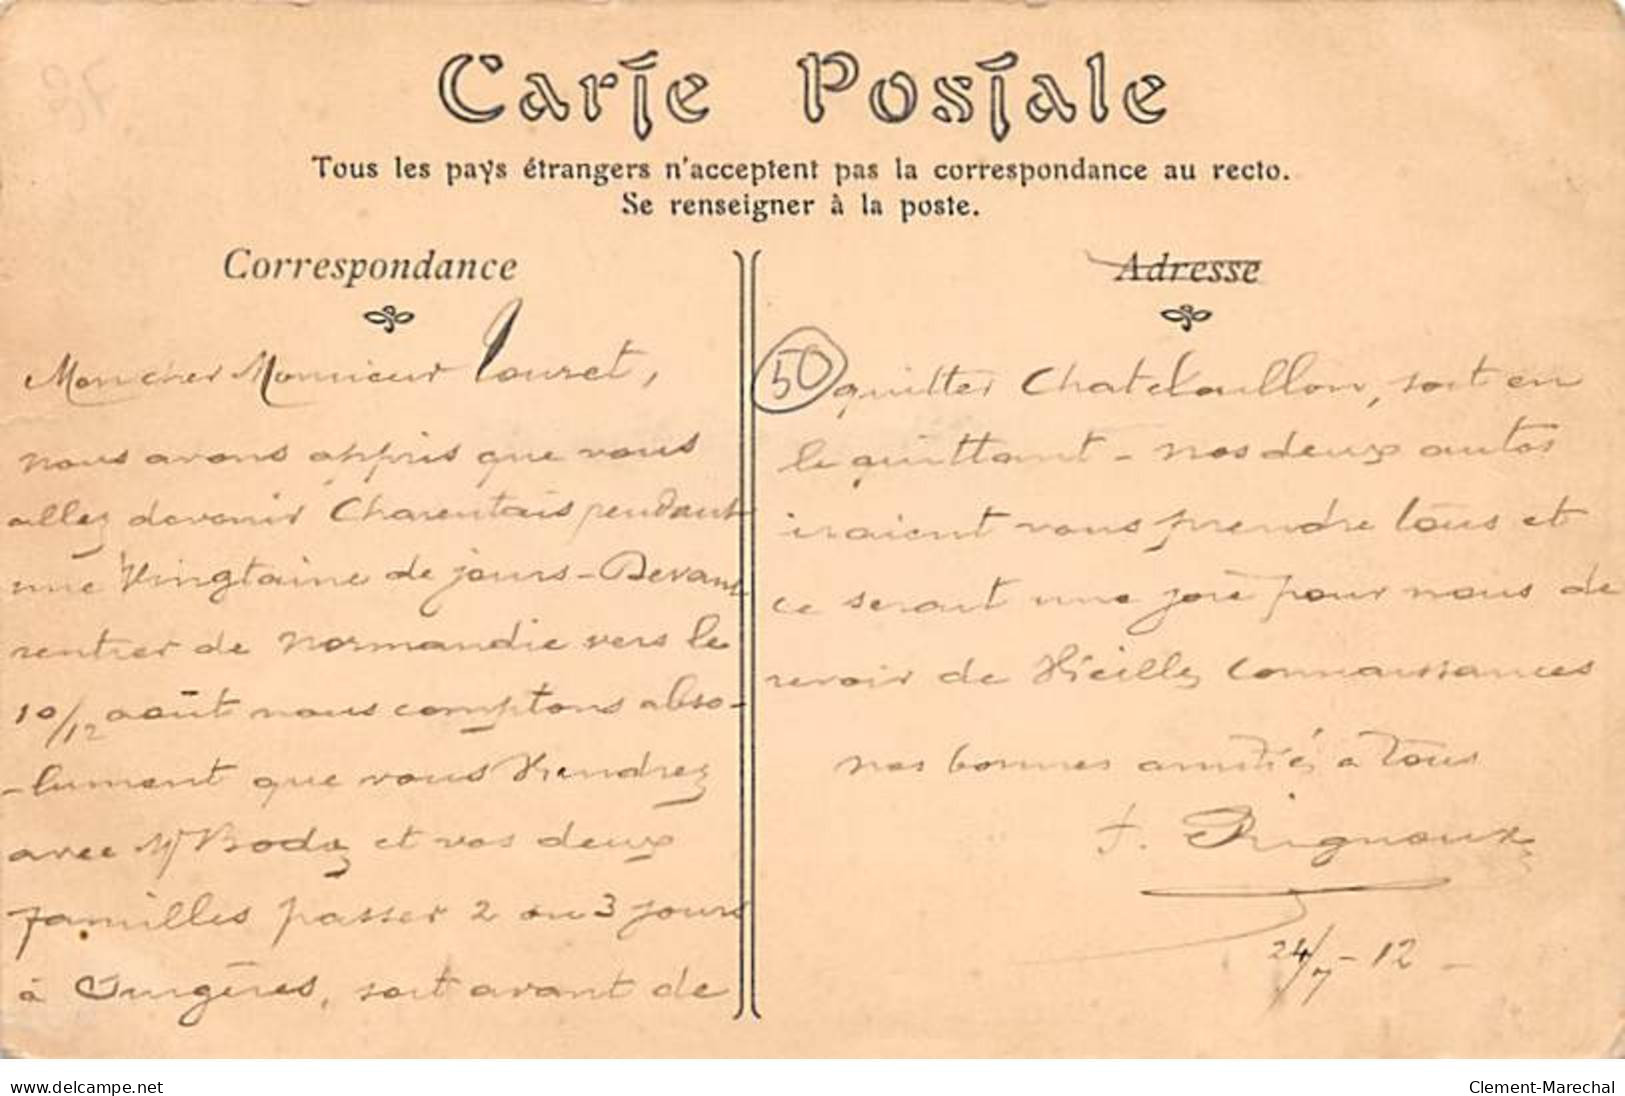 Carte Postale
Tous les pays étrangers n'acceptent pas la correspondance au recto.
Se renseigner à la poste.
Correspondance
Mon cher Monsieur Louret,
nous avons appris que vous
allez devenir Charentais pendant
une vingtaine de jours - Devant
rentrer de Normandie vers le
10/12 août nous comptons abso-
-lument que vous viendrez
avec Mr Boda et vos deux
familles passer 2 ou 3 jours
à Surgères, soit avant de
Adresse
50
quitter Chatelaillon, soit en
le quittant - nos deux autos
iraient vous prendre tous et
ce serait une joie pour nous de
revoir de vieilles connaissances
nos bonnes amitiés à tous
F. Rignoux
24/7 - 12
www.delcampe.net
Clement-Marechal